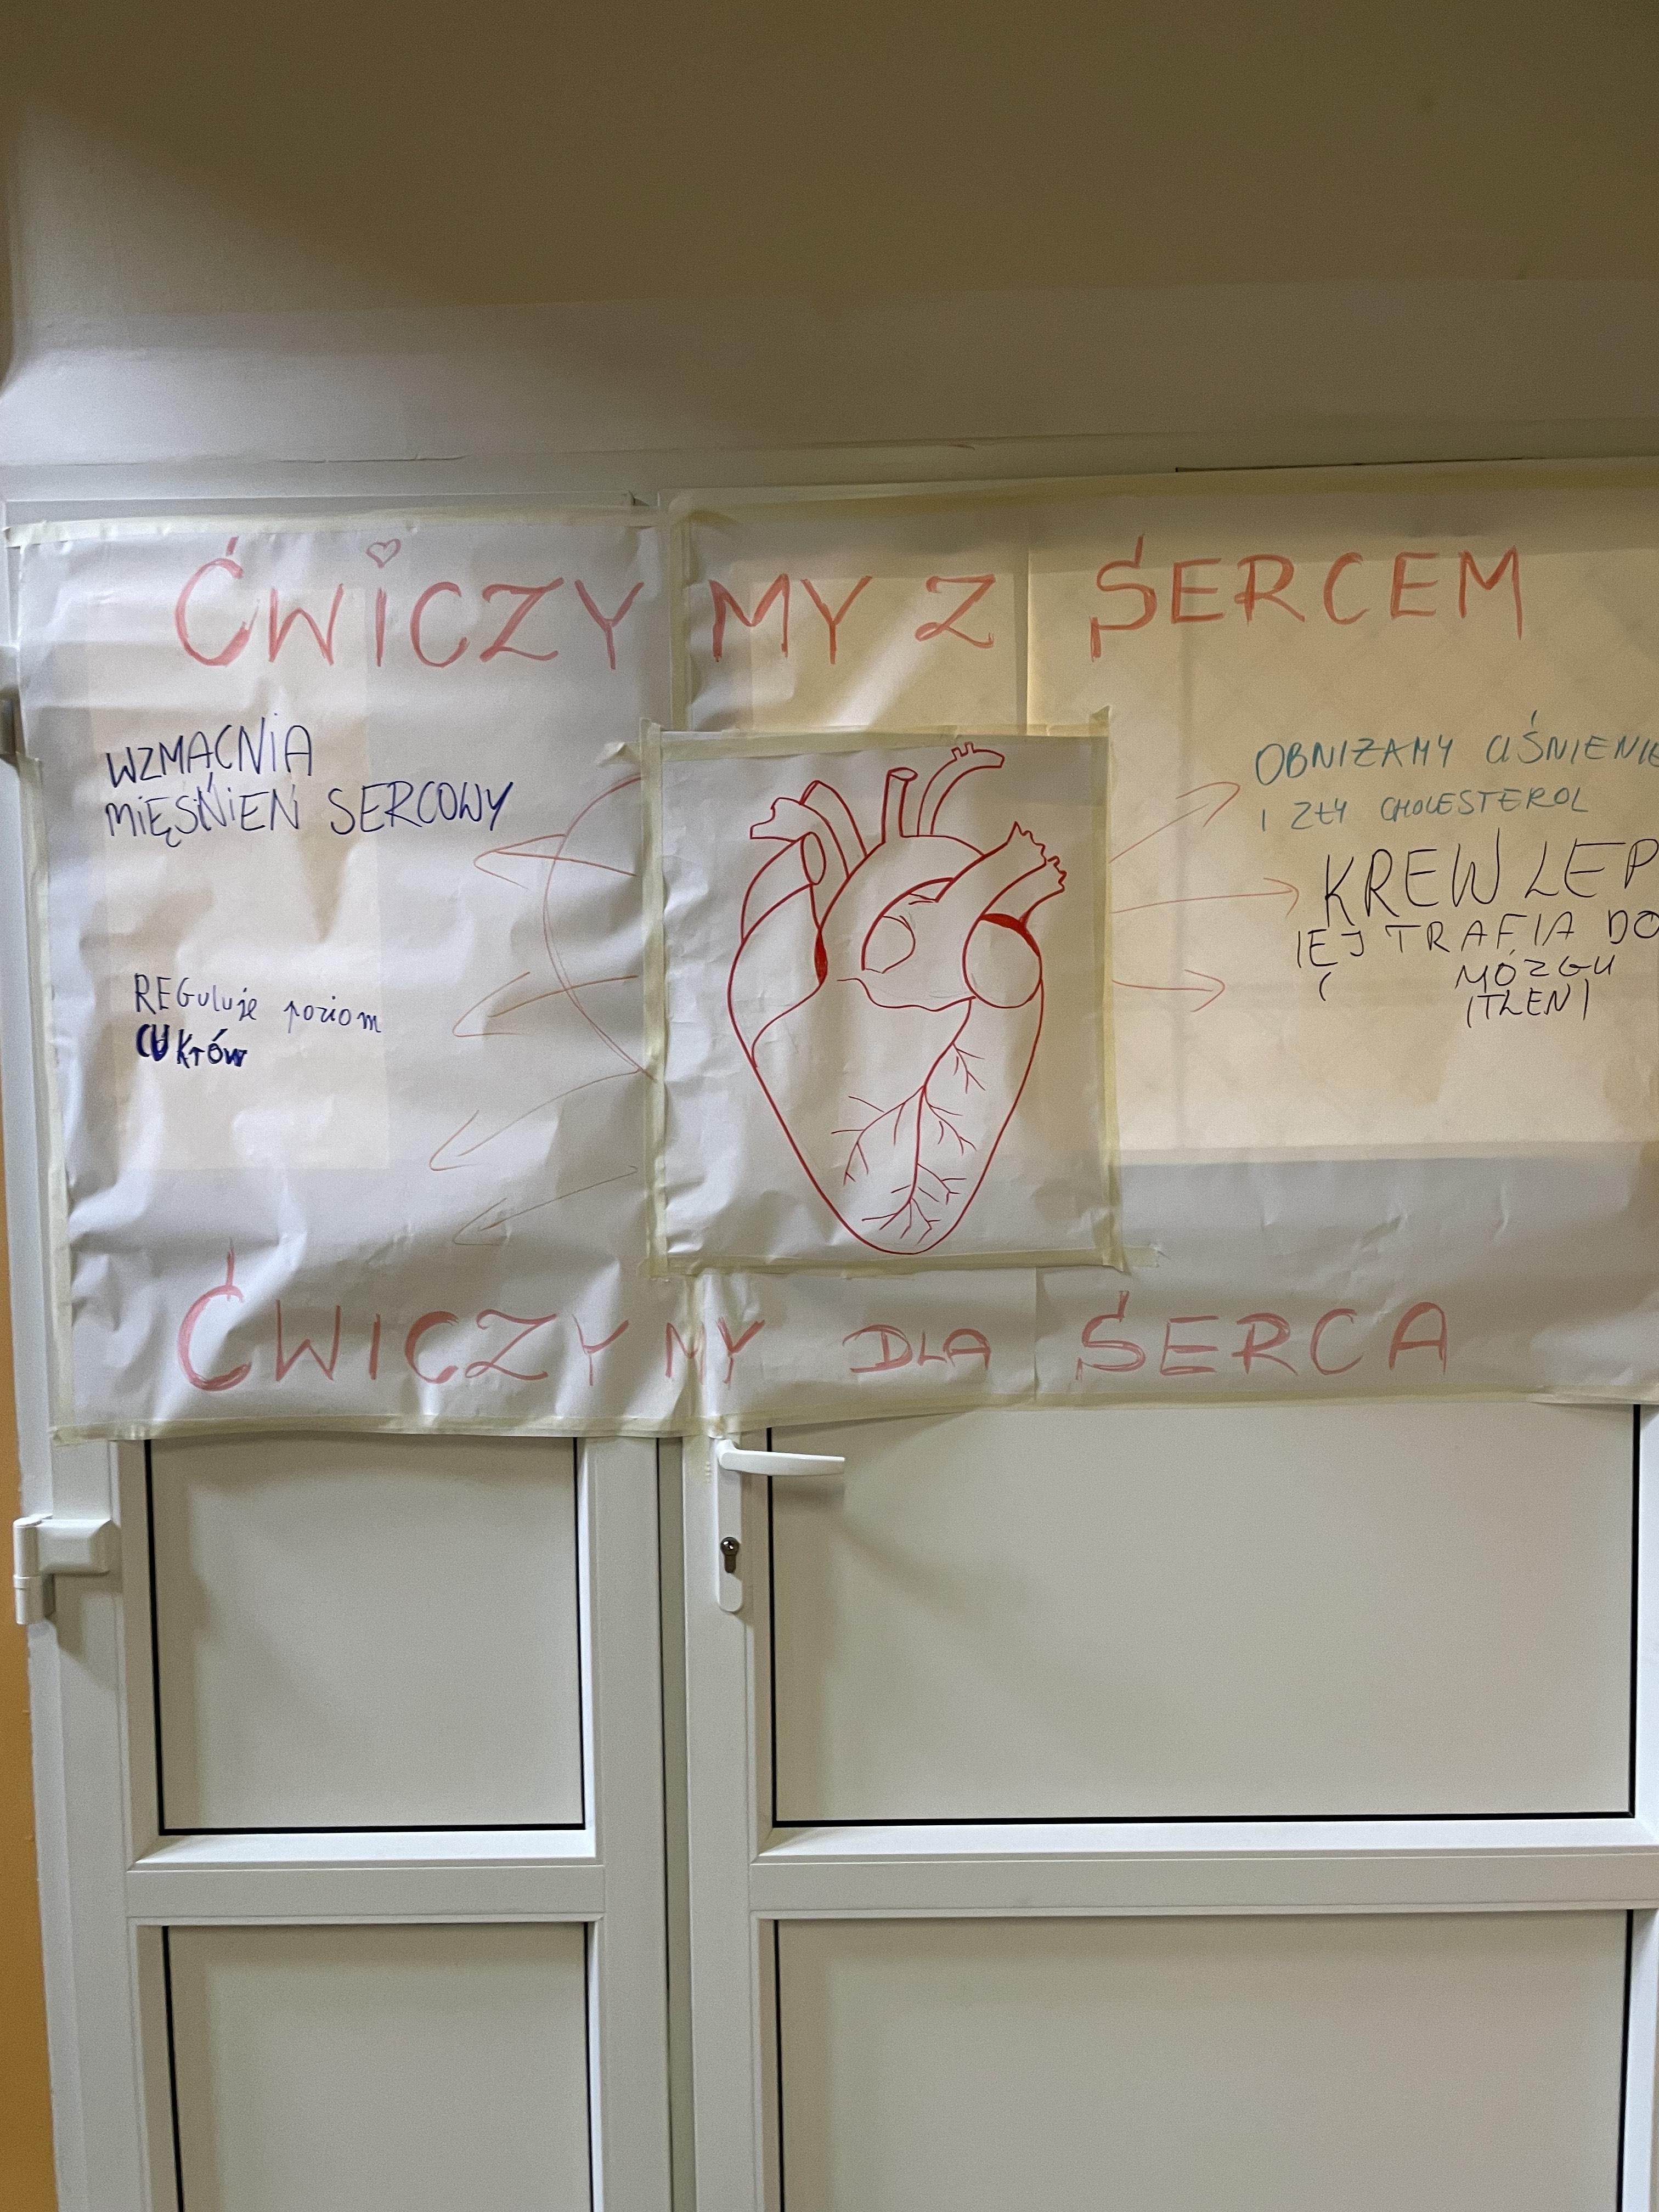 ĆWiCZYMY Z SERCEM
WZMACNiA
MiĘSNiEN SERCOWY
REGuluje poziom
CUKrów
OBNIZAMY CIŚNIENIE
I ZŁY CHOLESTEROL
KREW LEP
IEJ TRAFIA DO
MÓZGU
(TLEN)
ĆWICZYMY DLA SERCA